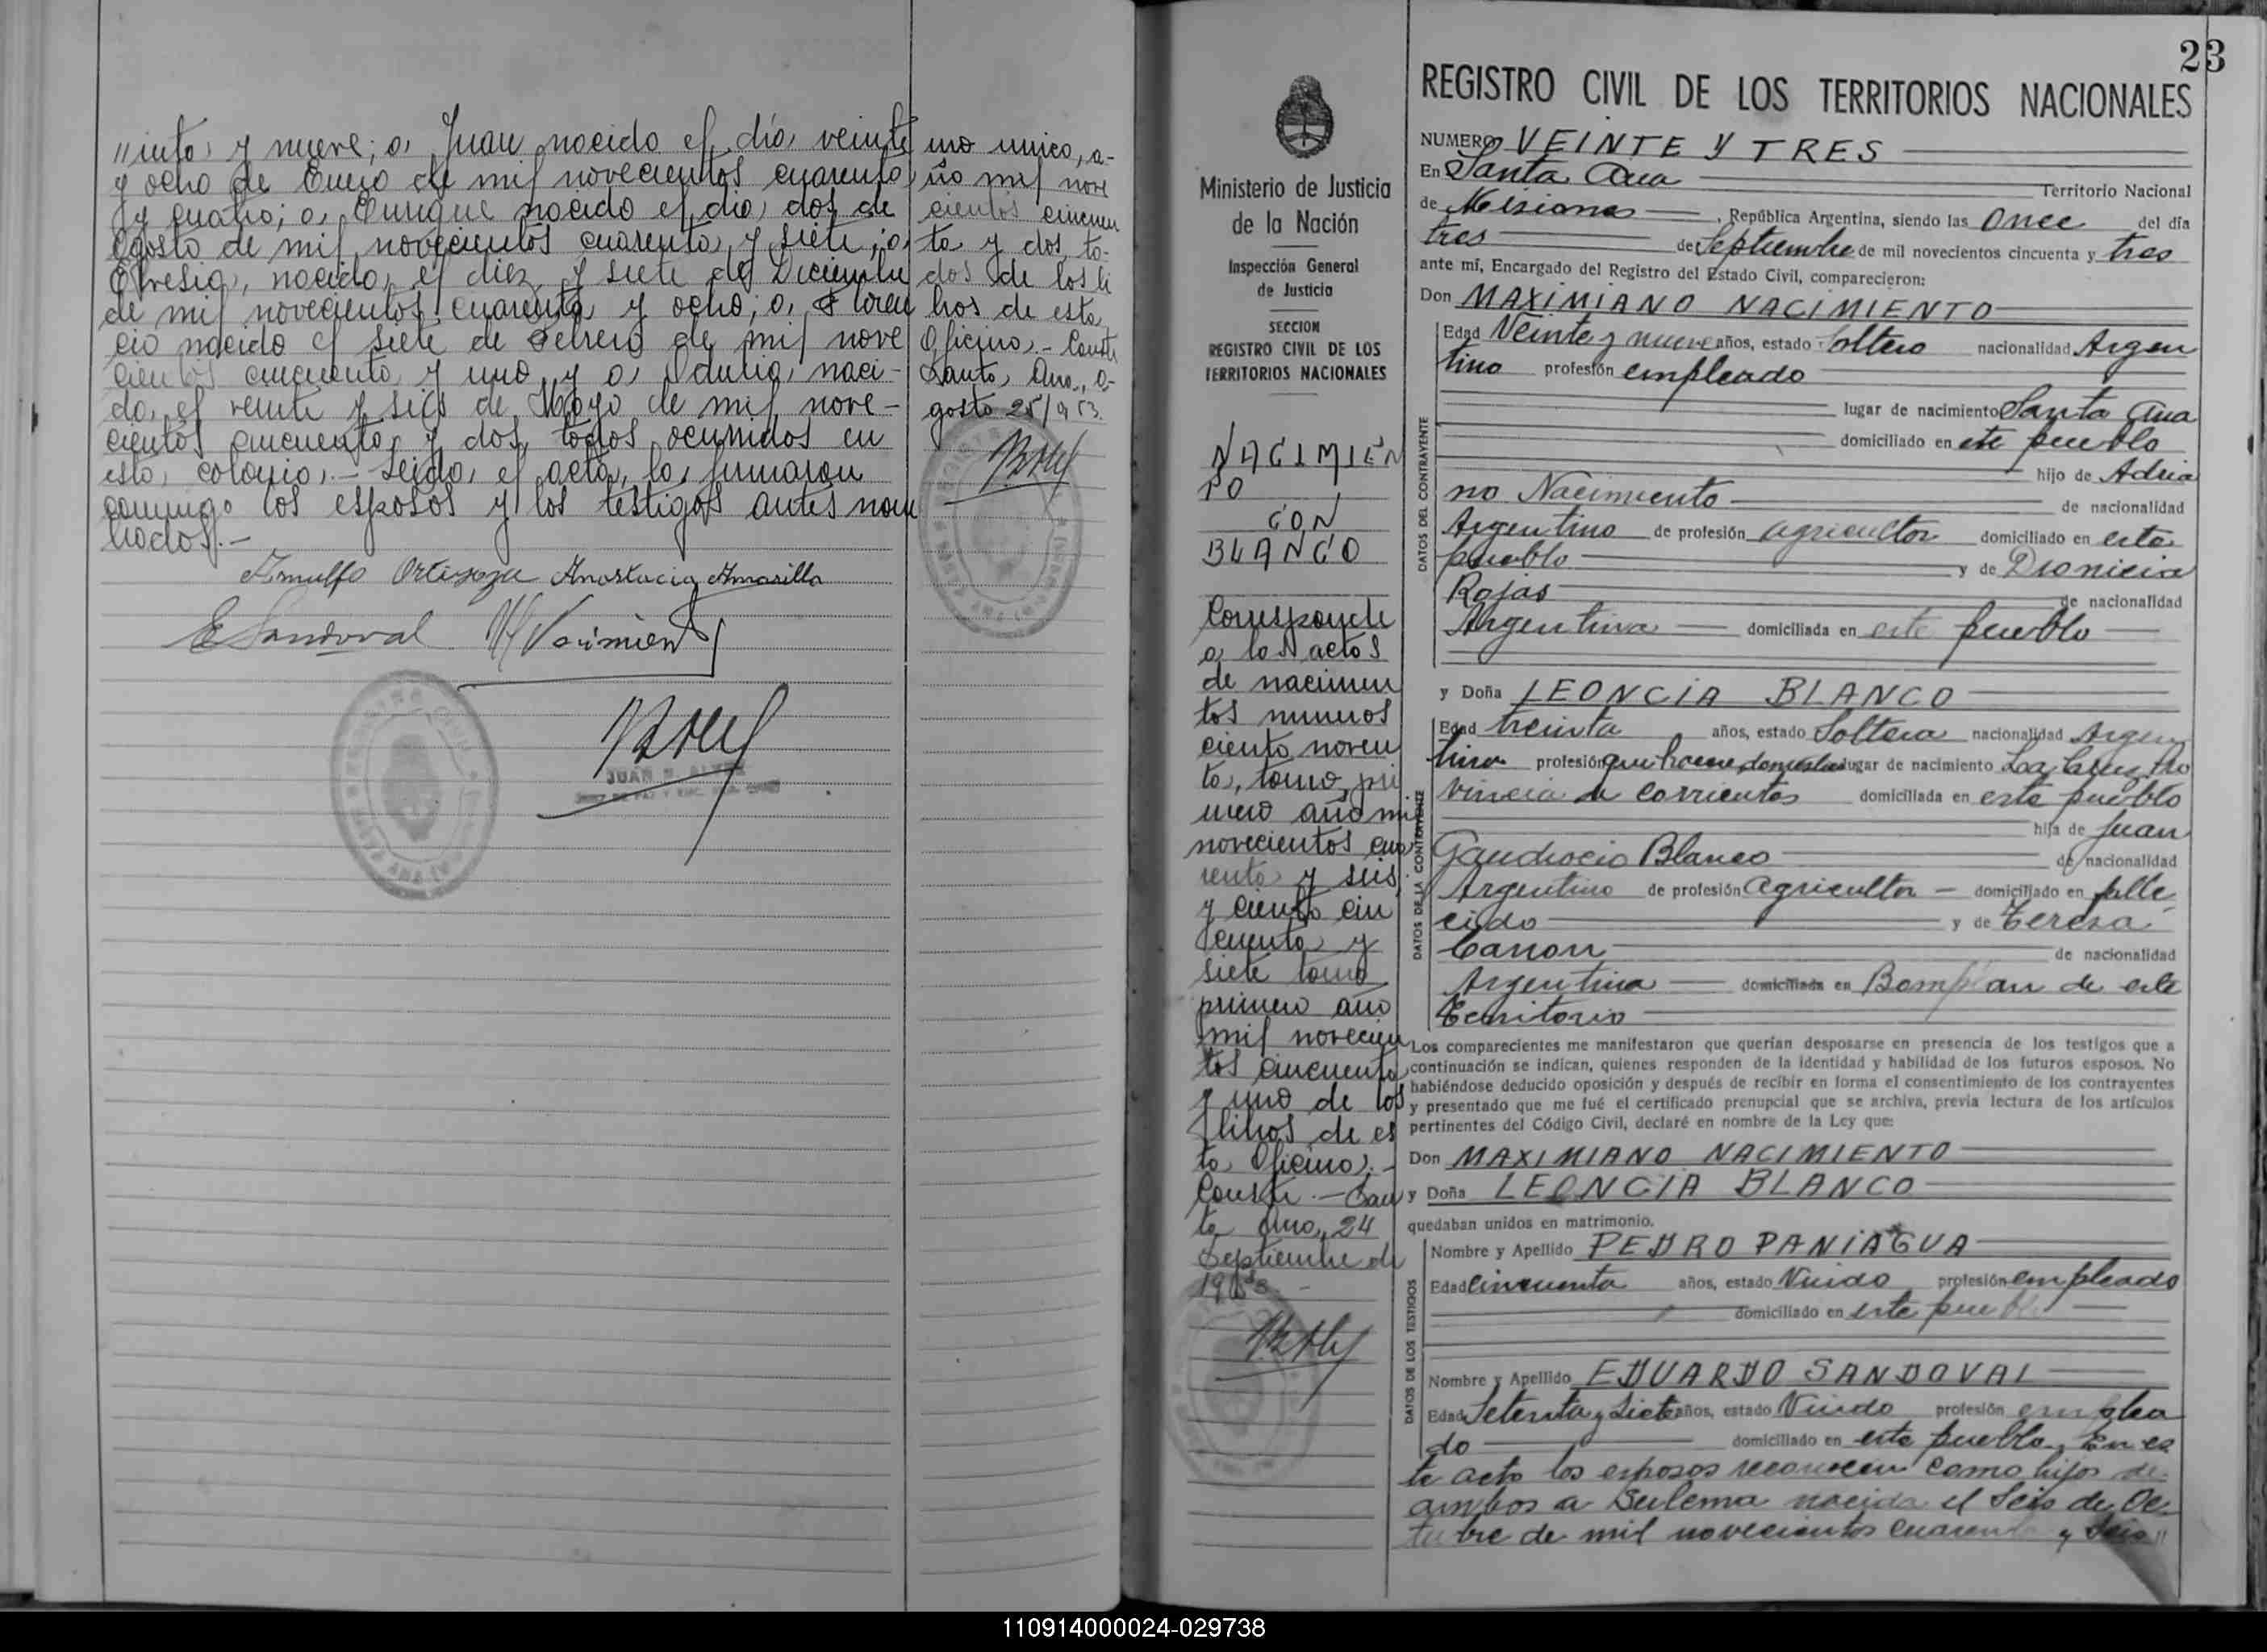 "inta y nueve; a Juan nacido el día veinte
y ocho de Enero de mil novecientos cuarenta
y cuatro; a Enrique nacido el dia dos de
Agosto de mil novecientos cuarenta y siete; a
nacida el diez y siete de Diciembre
de mil novecientos cuarenta y ocho; a Floren
cio nacido el siete de Febrero de mil nove
cientos cincuenta y uno y a Obdulia naci-
da el veinte y seis de Mayo de mil nove-
cientos cincuenta y dos, todos ocurridos en
esta colonia.- Leida el acta, la firmaron
conmigo los esposos y los testigos antes nom
brados.-
Arnulfo Ortigoza Anastacia Amarilla
E Sandoval M Nacimiento
JUAN
mo unico, a-
ño mil nove
cientos cincuen
ta y dos, to-
dos de los li
bros de esta
Oficina.- Conste
Santa Ana, A-
gosto 25/953.
23
REGISTRO CIVIL DE LOS TERRITORIOS NACIONALES
Ministerio de Justicia
de la Nación
Inspección General
de Justicia
SECCION
REGISTRO CIVIL DE LOS
TERRITORIOS NACIONALES
NACIMIEN
TO
CON
BLANCO
Corresponde
a las actas
de nacimien
tos numeros
ciento noven
ta, tomo pri
mero año mil
novecientos cua
renta y seis
y ciento cin
cuenta y
siete tomo
primero año
mil novecien
tos cincuenta
y uno de los
libros de es
ta Oficina.-
Conste.- San
ta Ana, 24
Septiembre de
1953.-
NUMERO VEINTE Y TRES
En Santa Ana Territorio Nacional
de Misiones, República Argentina, siendo las Once del día
tres de Septiembre de mil novecientos cincuenta y tres
ante mí, Encargado del Registro del Estado Civil, comparecieron:
Don MAXIMIANO NACIMIENTO
DATOS DEL CONTRAYENTE
Edad Veinte y nueve años, estado Soltero nacionalidad Argen
tino profesión empleado
lugar de nacimiento Santa Ana
domiciliado en este pueblo
hijo de Adria
no Nacimiento de nacionalidad
Argentino de profesión agricultor domiciliado en este
pueblo y de Dionicia
Rojas de nacionalidad
Argentina domiciliada en este pueblo
y Doña LEONCIA BLANCO
DATOS DE LA CONTRAYENTE
Edad treinta años, estado Soltera nacionalidad Argen
tina profesión lugar de nacimiento La Cruz Pro
vincia de Corrientes domiciliada en este pueblo
hija de Juan
Gaudiocio Blanco de nacionalidad
Argentino de profesión Agricultor domiciliado en falle
cido y de Teresa
Canon de nacionalidad
Argentina domiciliada en Bomplan de este
Territorio
Los comparecientes me manifestaron que querían desposarse en presencia de los testigos que a
continuación se indican, quienes responden de la identidad y habilidad de los futuros esposos. No
habiéndose deducido oposición y después de recibir en forma el consentimiento de los contrayentes
y presentado que me fué el certificado prenupcial que se archiva, previa lectura de los artículos
pertinentes del Código Civil, declaré en nombre de la Ley que:
Don MAXIMIANO NACIMIENTO
y Doña LEONCIA BLANCO
quedaban unidos en matrimonio.
DATOS DE LOS TESTIGOS
Nombre y Apellido PEDRO PANIAGUA
Edad Cincuenta años, estado Viudo profesión empleado
domiciliado en este pueblo
Nombre y Apellido EDUARDO SANDOVAL
Edad Setenta y Siete años, estado Viudo profesión emplea
do domiciliado en este pueblo, En es
te acto los esposos reconocen como hijos de
ambos a Sulema nacida el seis de Oc
tubre de mil novecientos cuarenta y seis"
110914000024-029738